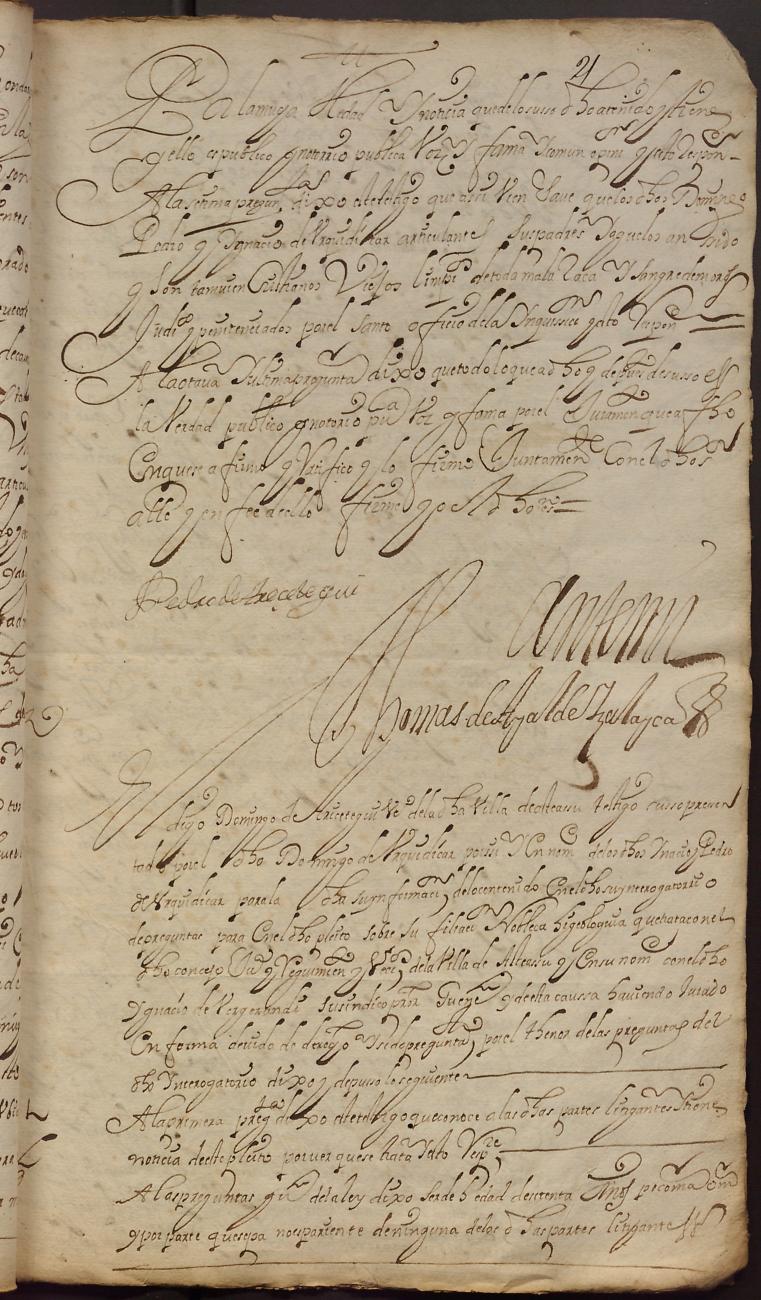 21
De la mucha hedad y noticia que de lo suso dho a tenido y tiene
y ello es publico y notorio publica voz y fama y comun opin y esto respon
A la septima pregunta dixo este testigo que assi vien save que los dhos Domingo
Pedro y Ygnacio de Urquidicar articulantes sus padres y aguelos an sido
y son tamvien Cristianos Viejos limpios de toda mala raca y sangre de moros
Judios y penitenciados por el santo officio de la Ynquissicion y esto respon
A la otava y ultima pregunta dixo que todo lo que a dho y depuesto de susso es
la Verdad publico y notorio pu.ca voz y fama por el Juramen que a fho
En que se afirmo y ratifico y lo firmo Juntamente Con el dho s.r
alle y en fee de ello firme yo el dho es.no =
Pedro de
Antemi
Thomas de Ayalde Yzalayca
El dicho Domingo de Arecetegui v.o de la dha Villa de Alcassu testigo susso presen
tado por el dho Domingo de Urquidicar por ssi y en nom de los dhos Ynacio y Pedro
de Urquidicar para la dha ynformacion del contenido en el dho su ynterogatorio
de preguntas para en el dho pleito sobre su filiacion Nobleca hijeblog uia que trata con el
dho concejo Jus.a y regimien y Vecinos de la Villa de Alcassu y en su nom con el dho
Ygnacio de Vergerandi su sindico pror Juez de esta caussa haviendo Jurado
En forma devida de derecho y side preguntado por el thenor de las preguntas del
dho Ynterogatorio dixo y depusso lo seguiente
A la primera preg.ta dixo este testigo que conoce a las dhas partes litigantes y tiene
noticia de este pleito por ver que se trata y esto resp.de
A las preguntas g.les de la ley dixo ser de hedad de setenta años poco mas o m.s
y por parte que sepa no es pariente de ninguna de las dhas partes litigantes